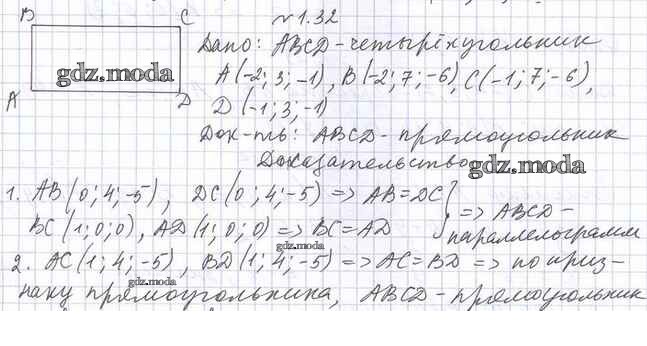 B C №1.32
Дано: ABCD - четырёхугольник
gdz.moda A(-2; 3; -1), B(-2; 7; -6), C(-1; 7; -6),
A D D(-1; 3; -1)
Док-ть: ABCD - прямоугольник
Доказательство gdz.moda
1. AB(0; 4; -5), DC(0; 4; -5) => AB = DC
BC(1; 0; 0), AD(1; 0; 0) => BC = AD } => ABCD -
параллелограмм
gdz.moda
2. AC(1; 4; -5), BD(1; 4; -5) => AC = BD => по приз-
gdz.moda
наку прямоугольника, ABCD - прямоугольник